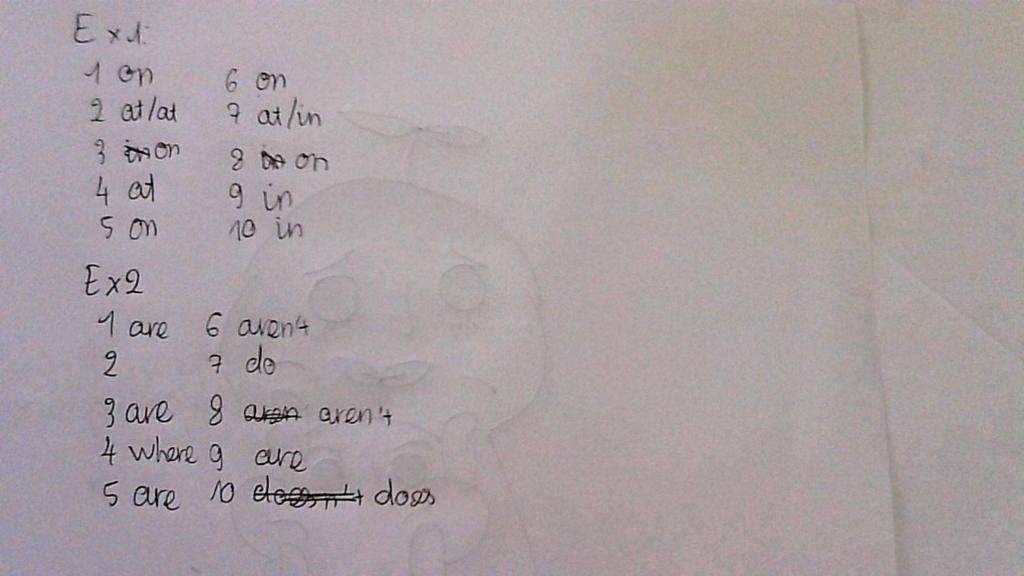 Ex1:
1 on 6 on
2 at/at 7 at/in
3 in on 8 in on
4 at 9 in
5 on 10 in
Ex2
1 are 6 aren't
2 7 do
3 are 8 aren aren't
4 where 9 are
5 are 10 doesn't does